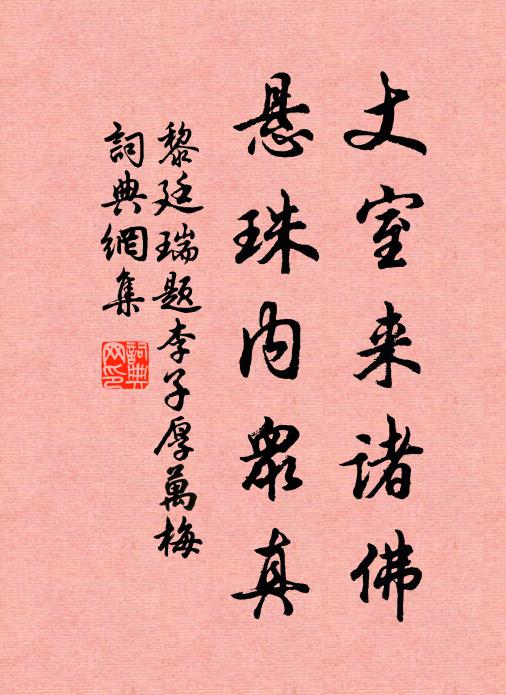 丈室来諸佛
悬珠内眾真
黎廷瑞题李子厚萬梅
詞典網集
詞典网印